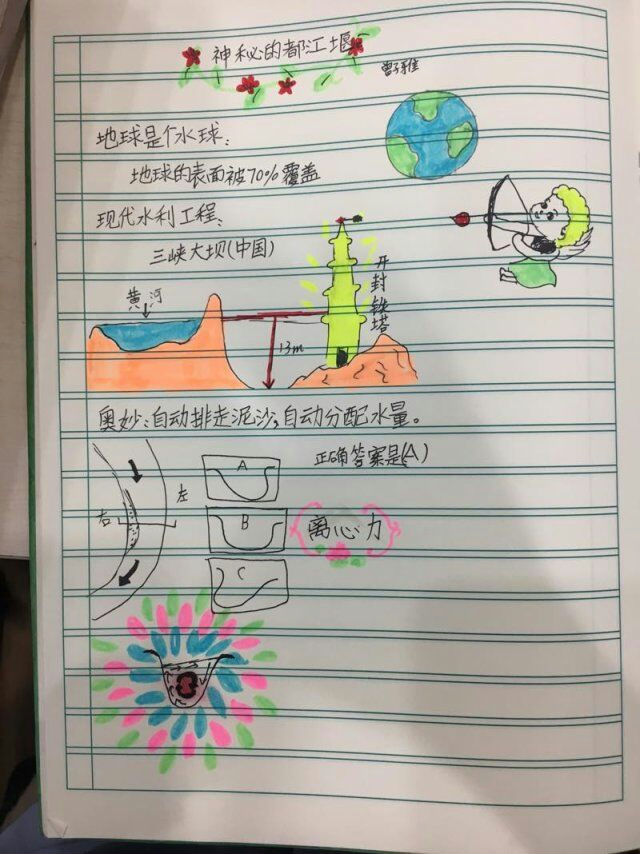 神秘的都江堰
地球是个水球:
地球的表面被70%覆盖
现代水利工程:
三峡大坝(中国)
黄河
开封铁塔
13m
奥妙:自动排走泥沙,自动分配水量。
正确答案是(A)
A
左
右
B
离心力
C